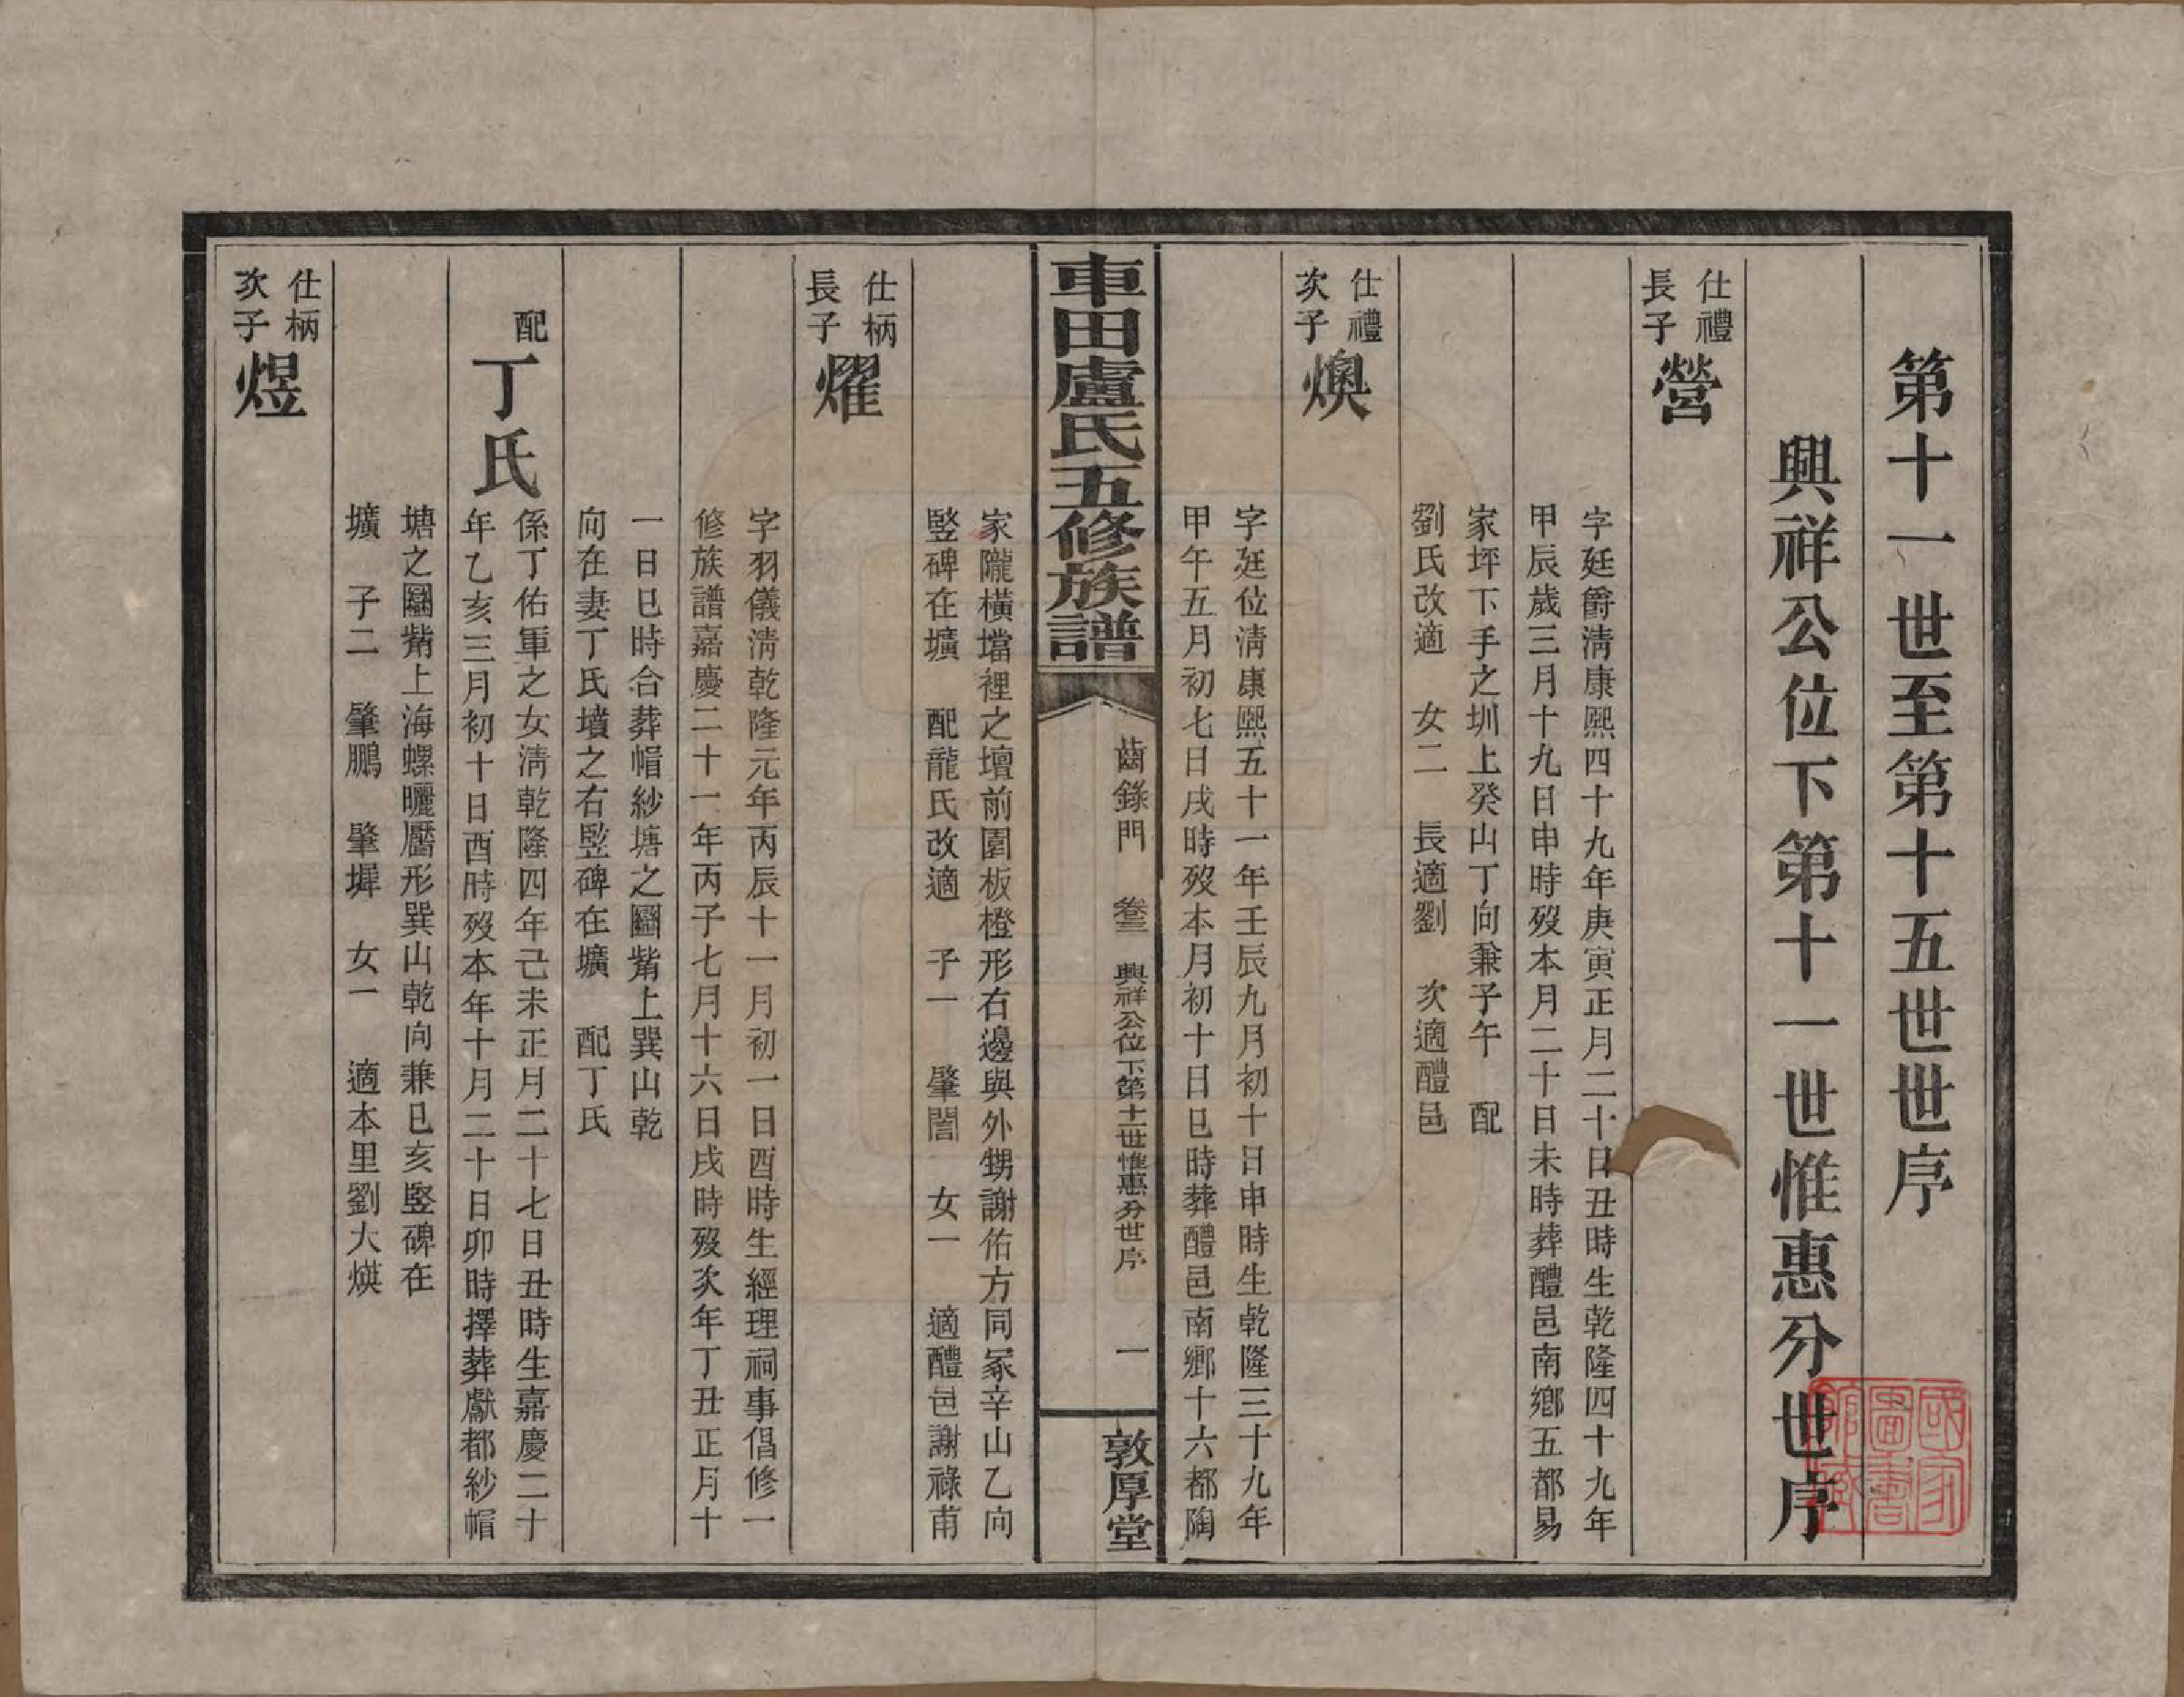 第十一世至第十五世世序
興祥公位下第十一世惟惠分世序
仕禮
長子
營
字廷爵淸康熙四十九年庚寅正月二十日丑時生乾隆四十九年
甲辰歲三月十九日申時歿本月二十日未時葬醴邑南鄉五都易
家坪下手之圳上癸山丁向兼子午　配
劉氏改適　女二　長適劉　次適醴邑
仕禮
次子
燠
字廷位淸康熙五十一年壬辰九月初十日申時生乾隆三十九年
甲午五月初七日戌時歿本月初十日巳時葬醴邑南鄉十六都陶
車田盧氏五修族譜
齒錄門　卷三　興祥公位下第十一世惟惠分世序　一
敦厚堂
家隴橫壋裡之壇前園板橙形右邊與外甥謝佑方同冢辛山乙向
竪碑在壙　配龍氏改適　子一　肇誾　女一　適醴邑謝祿甫
仕柄
長子
燿
字羽儀淸乾隆元年丙辰十一月初一日酉時生經理祠事倡修一
修族譜嘉慶二十一年丙子七月十六日戌時歿次年丁丑正月十
一日巳時合葬帽紗塘之圝觜上巽山乾
向在妻丁氏墳之右竪碑在壙　配丁氏
配
丁氏
係丁佑軍之女淸乾隆四年己未正月二十七日丑時生嘉慶二十
年乙亥三月初十日酉時歿本年十月二十日卯時擇葬獻都紗帽
塘之圝觜上海螺曬靨形巽山乾向兼巳亥竪碑在
壙　子二　肇鵬　肇墀　女一　適本里劉大煐
仕柄
次子
煜
國家圖書館藏